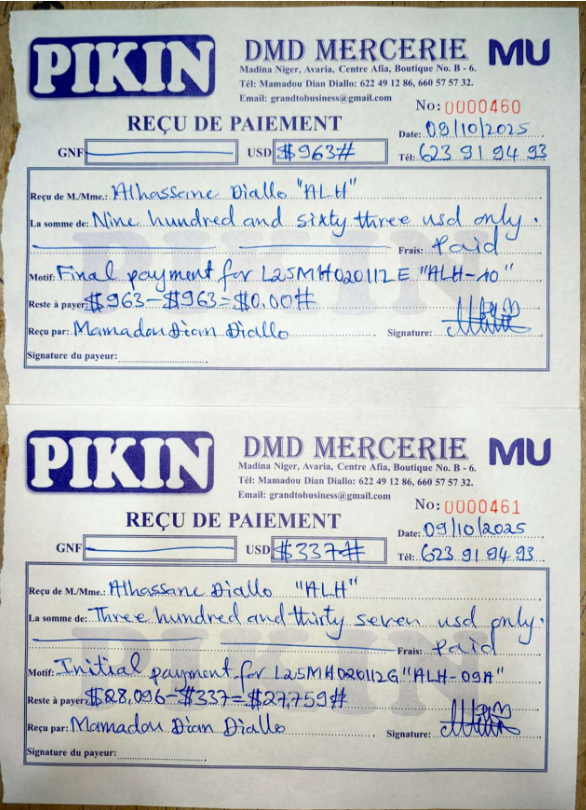 PIKIN
DMD MERCERIE MU
Madina Niger, Avaria, Centre Afia, Boutique No. B - 6.
Tél: Mamadou Dian Diallo: 622 49 12 86, 660 57 57 32.
Email: grandtobusiness@gmail.com
No: 0000460
REÇU DE PAIEMENT
Date: 09/10/2025
GNF USD $963#
Tél: 623 91 94 93
Reçu de M./Mme.: Alhassane Diallo "ALH"
La somme de: Nine hundred and sixty three usd only.
Frais: Paid
Motif: Final payment for L25MH020112E "ALH-10"
Reste à payer: $963-$963=$0.00#
Reçu par: Mamadou Dian Diallo Signature:
Signature du payeur:
PIKIN
DMD MERCERIE MU
Madina Niger, Avaria, Centre Afia, Boutique No. B - 6.
Tél: Mamadou Dian Diallo: 622 49 12 86, 660 57 57 32.
Email: grandtobusiness@gmail.com
No: 0000461
REÇU DE PAIEMENT
Date: 09/10/2025
GNF USD $337#
Tél: 623 91 94 93
Reçu de M./Mme.: Alhassane Diallo "ALH"
La somme de: Three hundred and thirty seven usd only.
Frais: Paid
Motif: Initial payment for L25MH020112G "ALH-09A"
Reste à payer: $28,096-$337=$27,759#
Reçu par: Mamadou Dian Diallo Signature:
Signature du payeur: